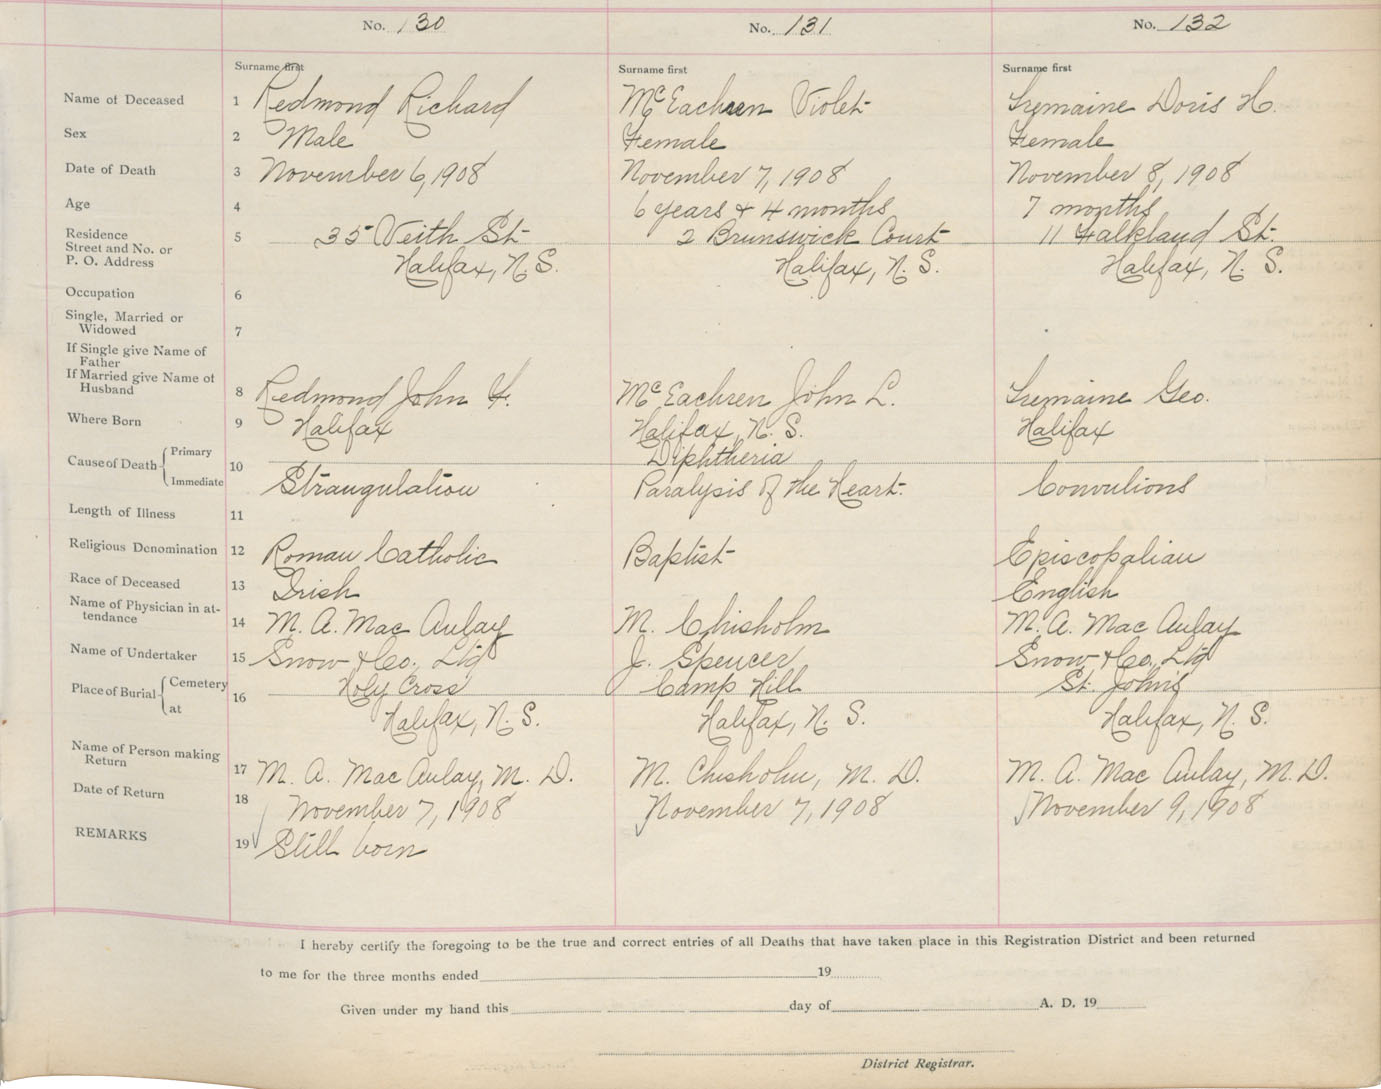 No. 130 No. 131 No. 132
Surname first Surname first Surname first
Name of Deceased 1 Redmond Richard McEachren Violet Tremaine Doris H.
Sex 2 Male Female Female
Date of Death 3 November 6, 1908 November 7, 1908 November 8, 1908
Age 4 6 years & 4 months 7 months
Residence 5 35 Veith St. 2 Brunswick Court 11 Falkland St.
Street and No. or
P. O. Address Halifax, N. S. Halifax, N. S. Halifax, N. S.
Occupation 6
Single, Married or
Widowed 7
If Single give Name of
Father
If Married give Name of
Husband 8 Redmond John F. McEachren John L. Tremaine Geo.
Where Born 9 Halifax Halifax, N. S. Halifax
Cause of Death Primary 10 Diphtheria
Immediate Strangulation Paralysis of the Heart. Convulions
Length of Illness 11
Religious Denomination 12 Roman Catholic Baptist Episcopalian
Race of Deceased 13 Irish English
Name of Physician in at-
tendance 14 M. A. Mac Aulay M. Chisholm M. A. Mac Aulay
Name of Undertaker 15 Snow & Co., Ltd J. Spencer Snow & Co., Ltd
Place of Burial Cemetery 16 Holy Cross Camp Hill St. John's
at Halifax, N. S. Halifax, N. S. Halifax, N. S.
Name of Person making
Return 17 M. A. Mac Aulay, M. D. M. Chisholm, M. D. M. A. Mac Aulay, M. D.
Date of Return 18 November 7, 1908 November 7, 1908 November 9, 1908
REMARKS 19 Still born
I hereby certify the foregoing to be the true and correct entries of all Deaths that have taken place in this Registration District and been returned
to me for the three months ended 19
Given under my hand this day of A. D. 19
District Registrar.